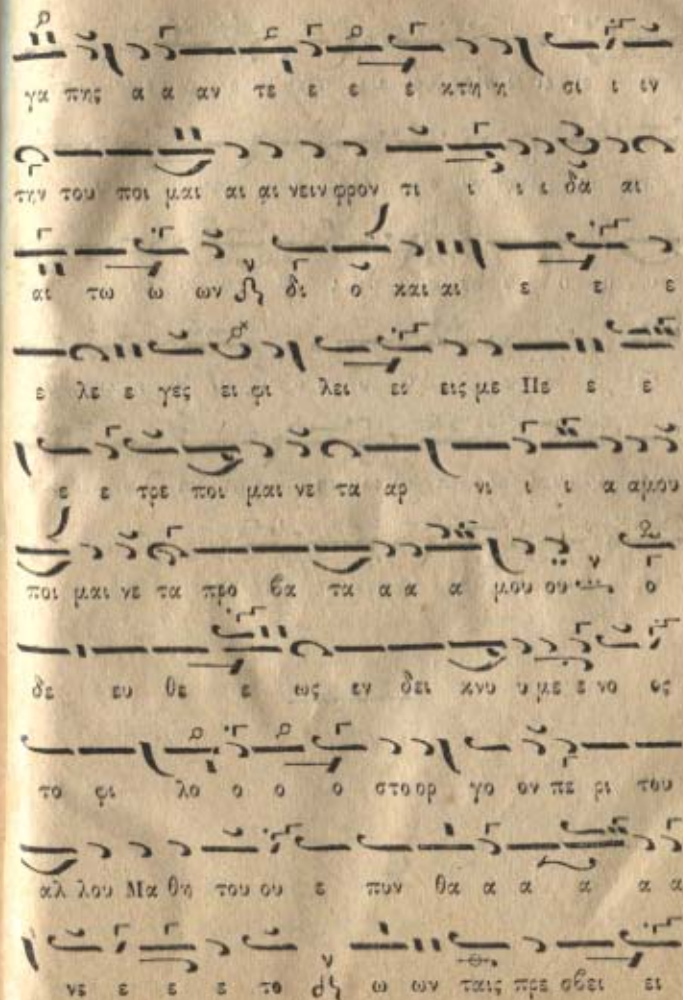 γα πης α α αν τε ε ε ε κτη η σι ι ιν
την του ποι μαι αι αι νειν φρον τι ι ι ι δα αι
αι τω ω ων δι ο και αι ε ε ε
ε λε ε γες ει φι λει ει εις με Πε ε ε
ε ε τρε ποι μαι νε τα αρ νι ι ι α α μου
ποι μαι νε τα προ βα τα α α α μου ου ο
δε ευ θε ε ως εν δει κνυ υ με ε νο ος
το φι λο ο ο ο στο ορ γο ον πε ρι του
αλ λου Μα θη του ου ε πυν θα α α α α α
νε ε ε ε το ω ων ταις πρε σβει ει